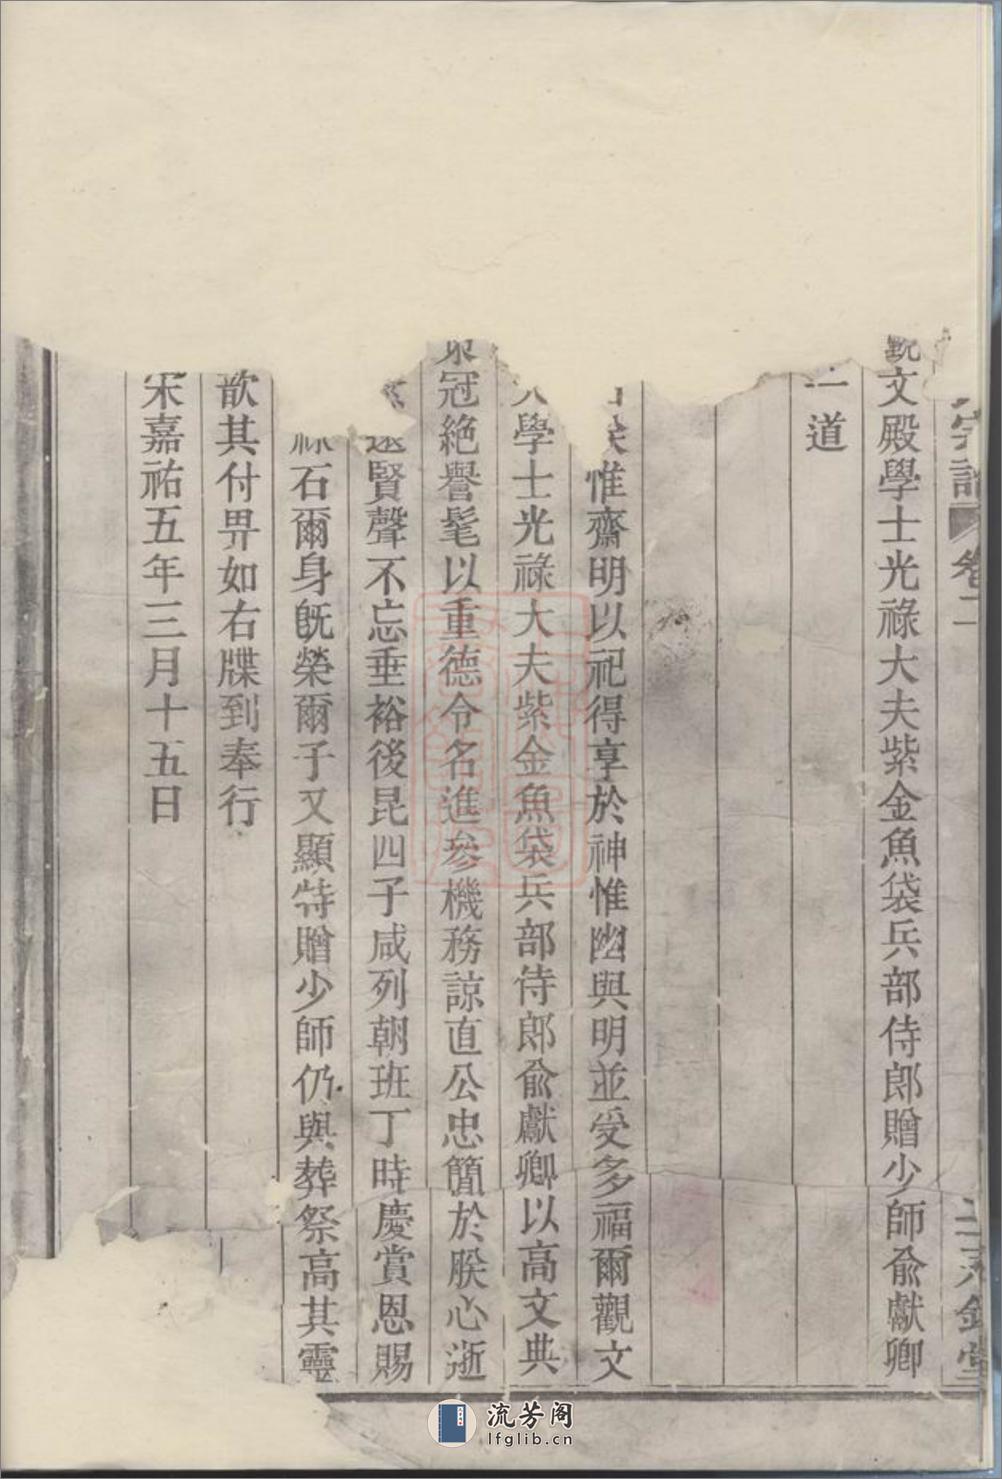 宗譜 卷二
觀文殿學士光祿大夫紫金魚袋兵部侍郎贈少師俞獻卿
一道
惟齋明以祀得享於神惟幽與明並受多福爾觀文
學士光祿大夫紫金魚袋兵部侍郎俞獻卿以高文典
冠絶譽髦以重德令名進參機務諒直公忠簡於朕心逝
遠賢聲不忘垂裕後昆四子咸列朝班丁時慶賞恩賜
祿石爾身旣榮爾子又顯特贈少師仍與葬祭高其靈
歆其付畀如右牒到奉行
宋嘉祐五年三月十五日
流芳阁
lfglib.cn